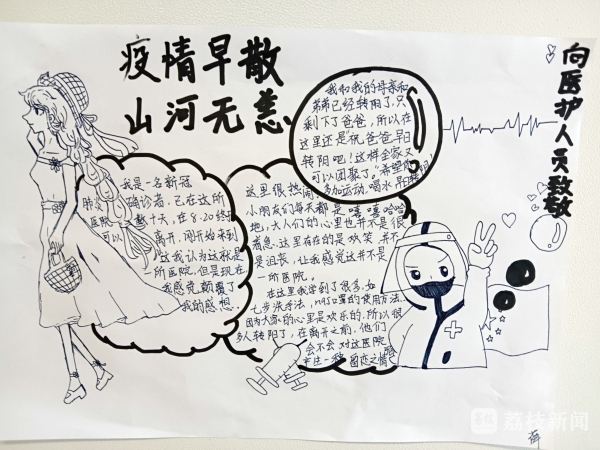 疫情早散
山河无恙
向医护人员致敬
我和我的母亲和
弟弟已经转阳了,只
剩下了爸爸,所以在
这里还是祝爸爸早日
转阳吧!这样全家又
可以团聚了。"希望你
多加运动,喝水,早日转阴
我是一名新冠
确诊者,已在这所
医院
数十天,在8.20终
可以
离开,刚开始来到
这我认为这就是
一所医院,但是现在
我感觉颠覆了
我的感想
这里很热闹
小朋友们每天都是嘻嘻哈哈
地,大人们的心里也并不是很
着急,这里存在的是欢笑,并不
是沮丧,让我感觉这并不是
一所医院。
在这里我学到了很多,如
七步洗手法,n95口罩的使用方法.
因为大家的心里是欢乐的,所以很
多人转阳了,在离开之前,他们
会不会对这医院
产生一种留恋之情
荔枝新闻